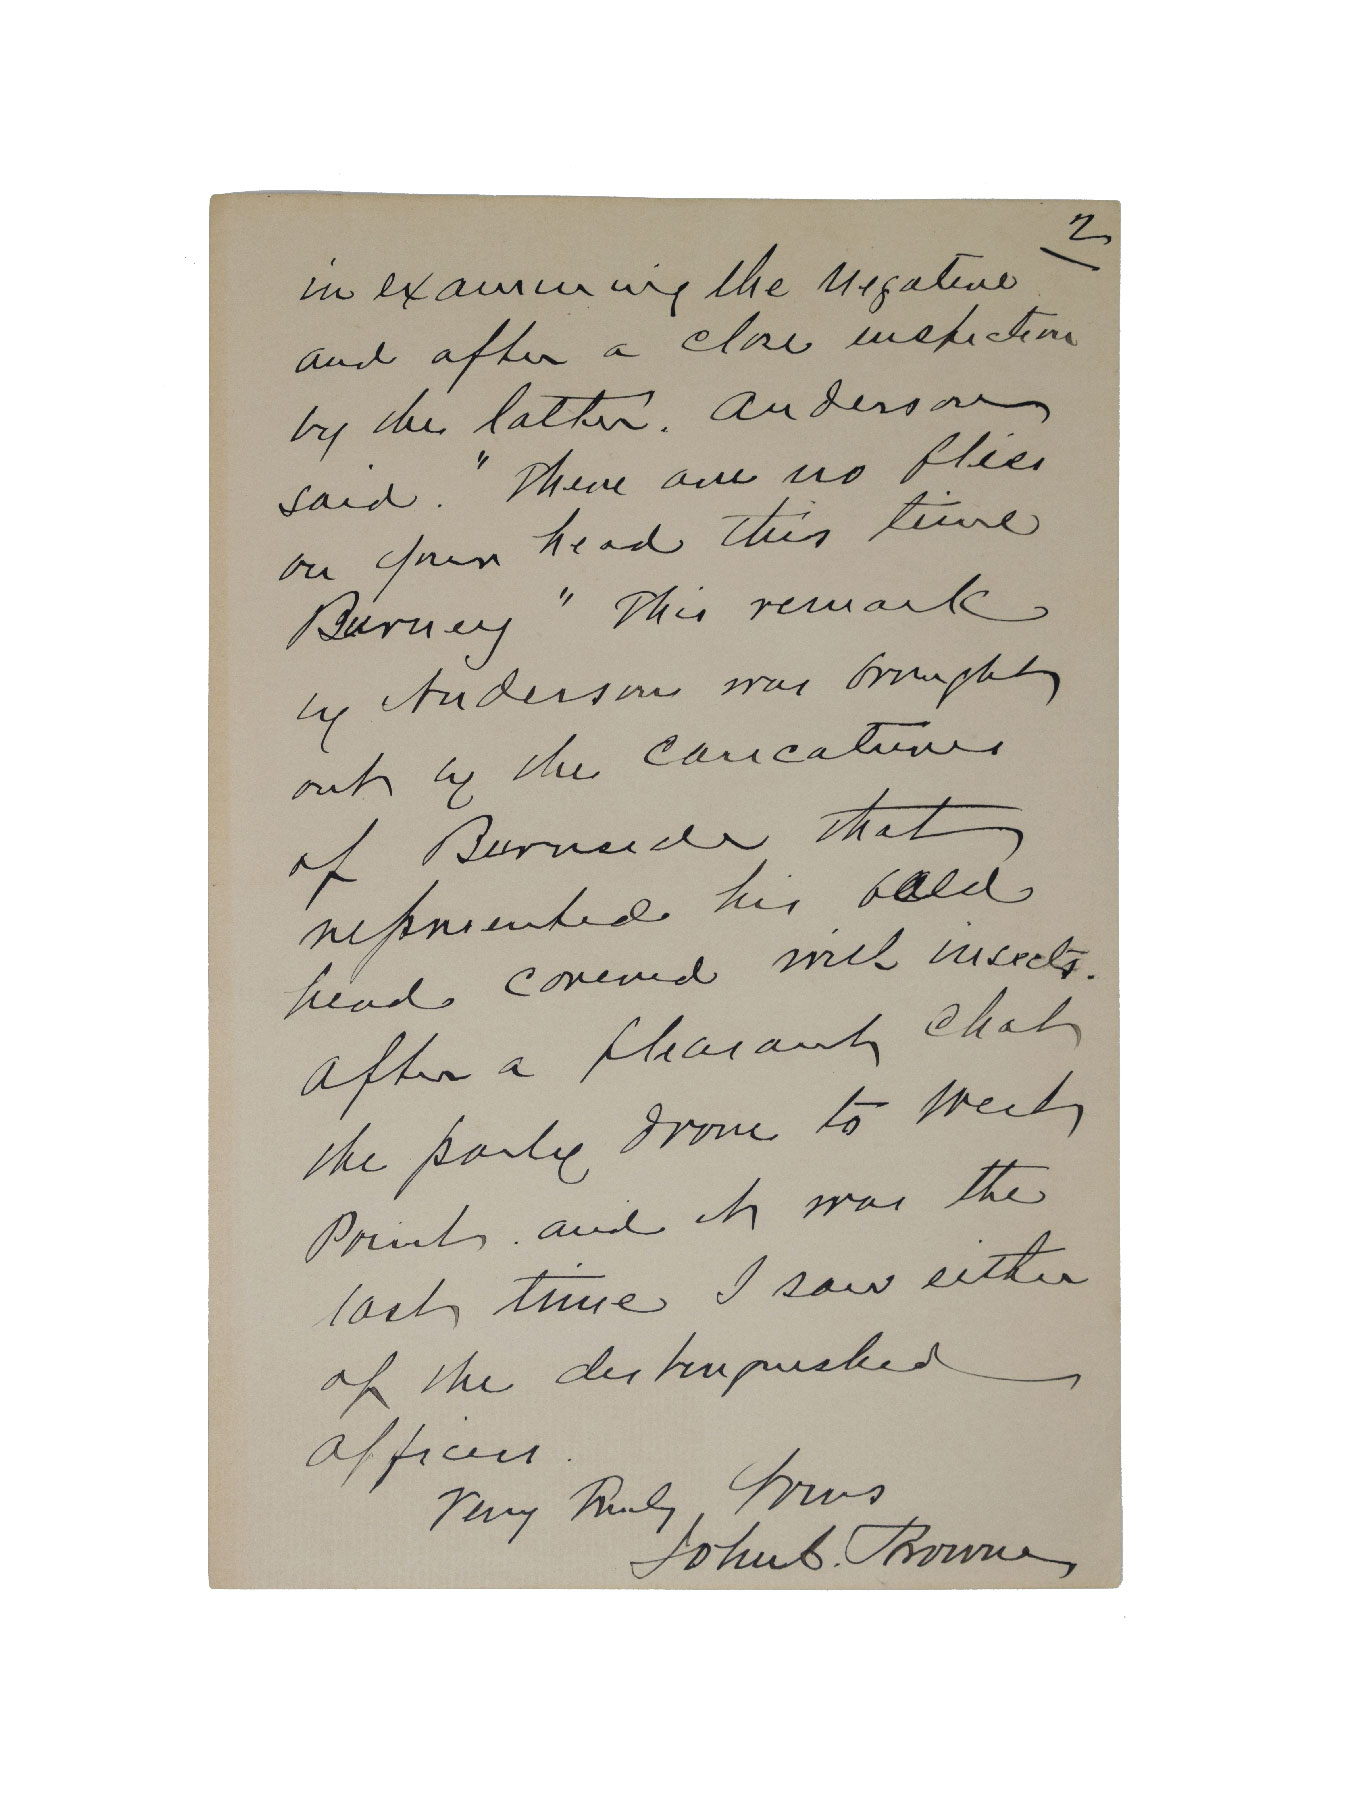 2
in examining the negative
and after a close inspection
by the latter. Anderson
said. "There are no flies
on your head this time
Burney" This remark
by Anderson was brought
out by the caricatures
of Burnside that
represented his bald
head covered with insects.
After a pleasant chat
the party drove to West
Point. and it was the
last time I saw either
of the distinguished
officers.
Very Truly Yours
John C. Browne